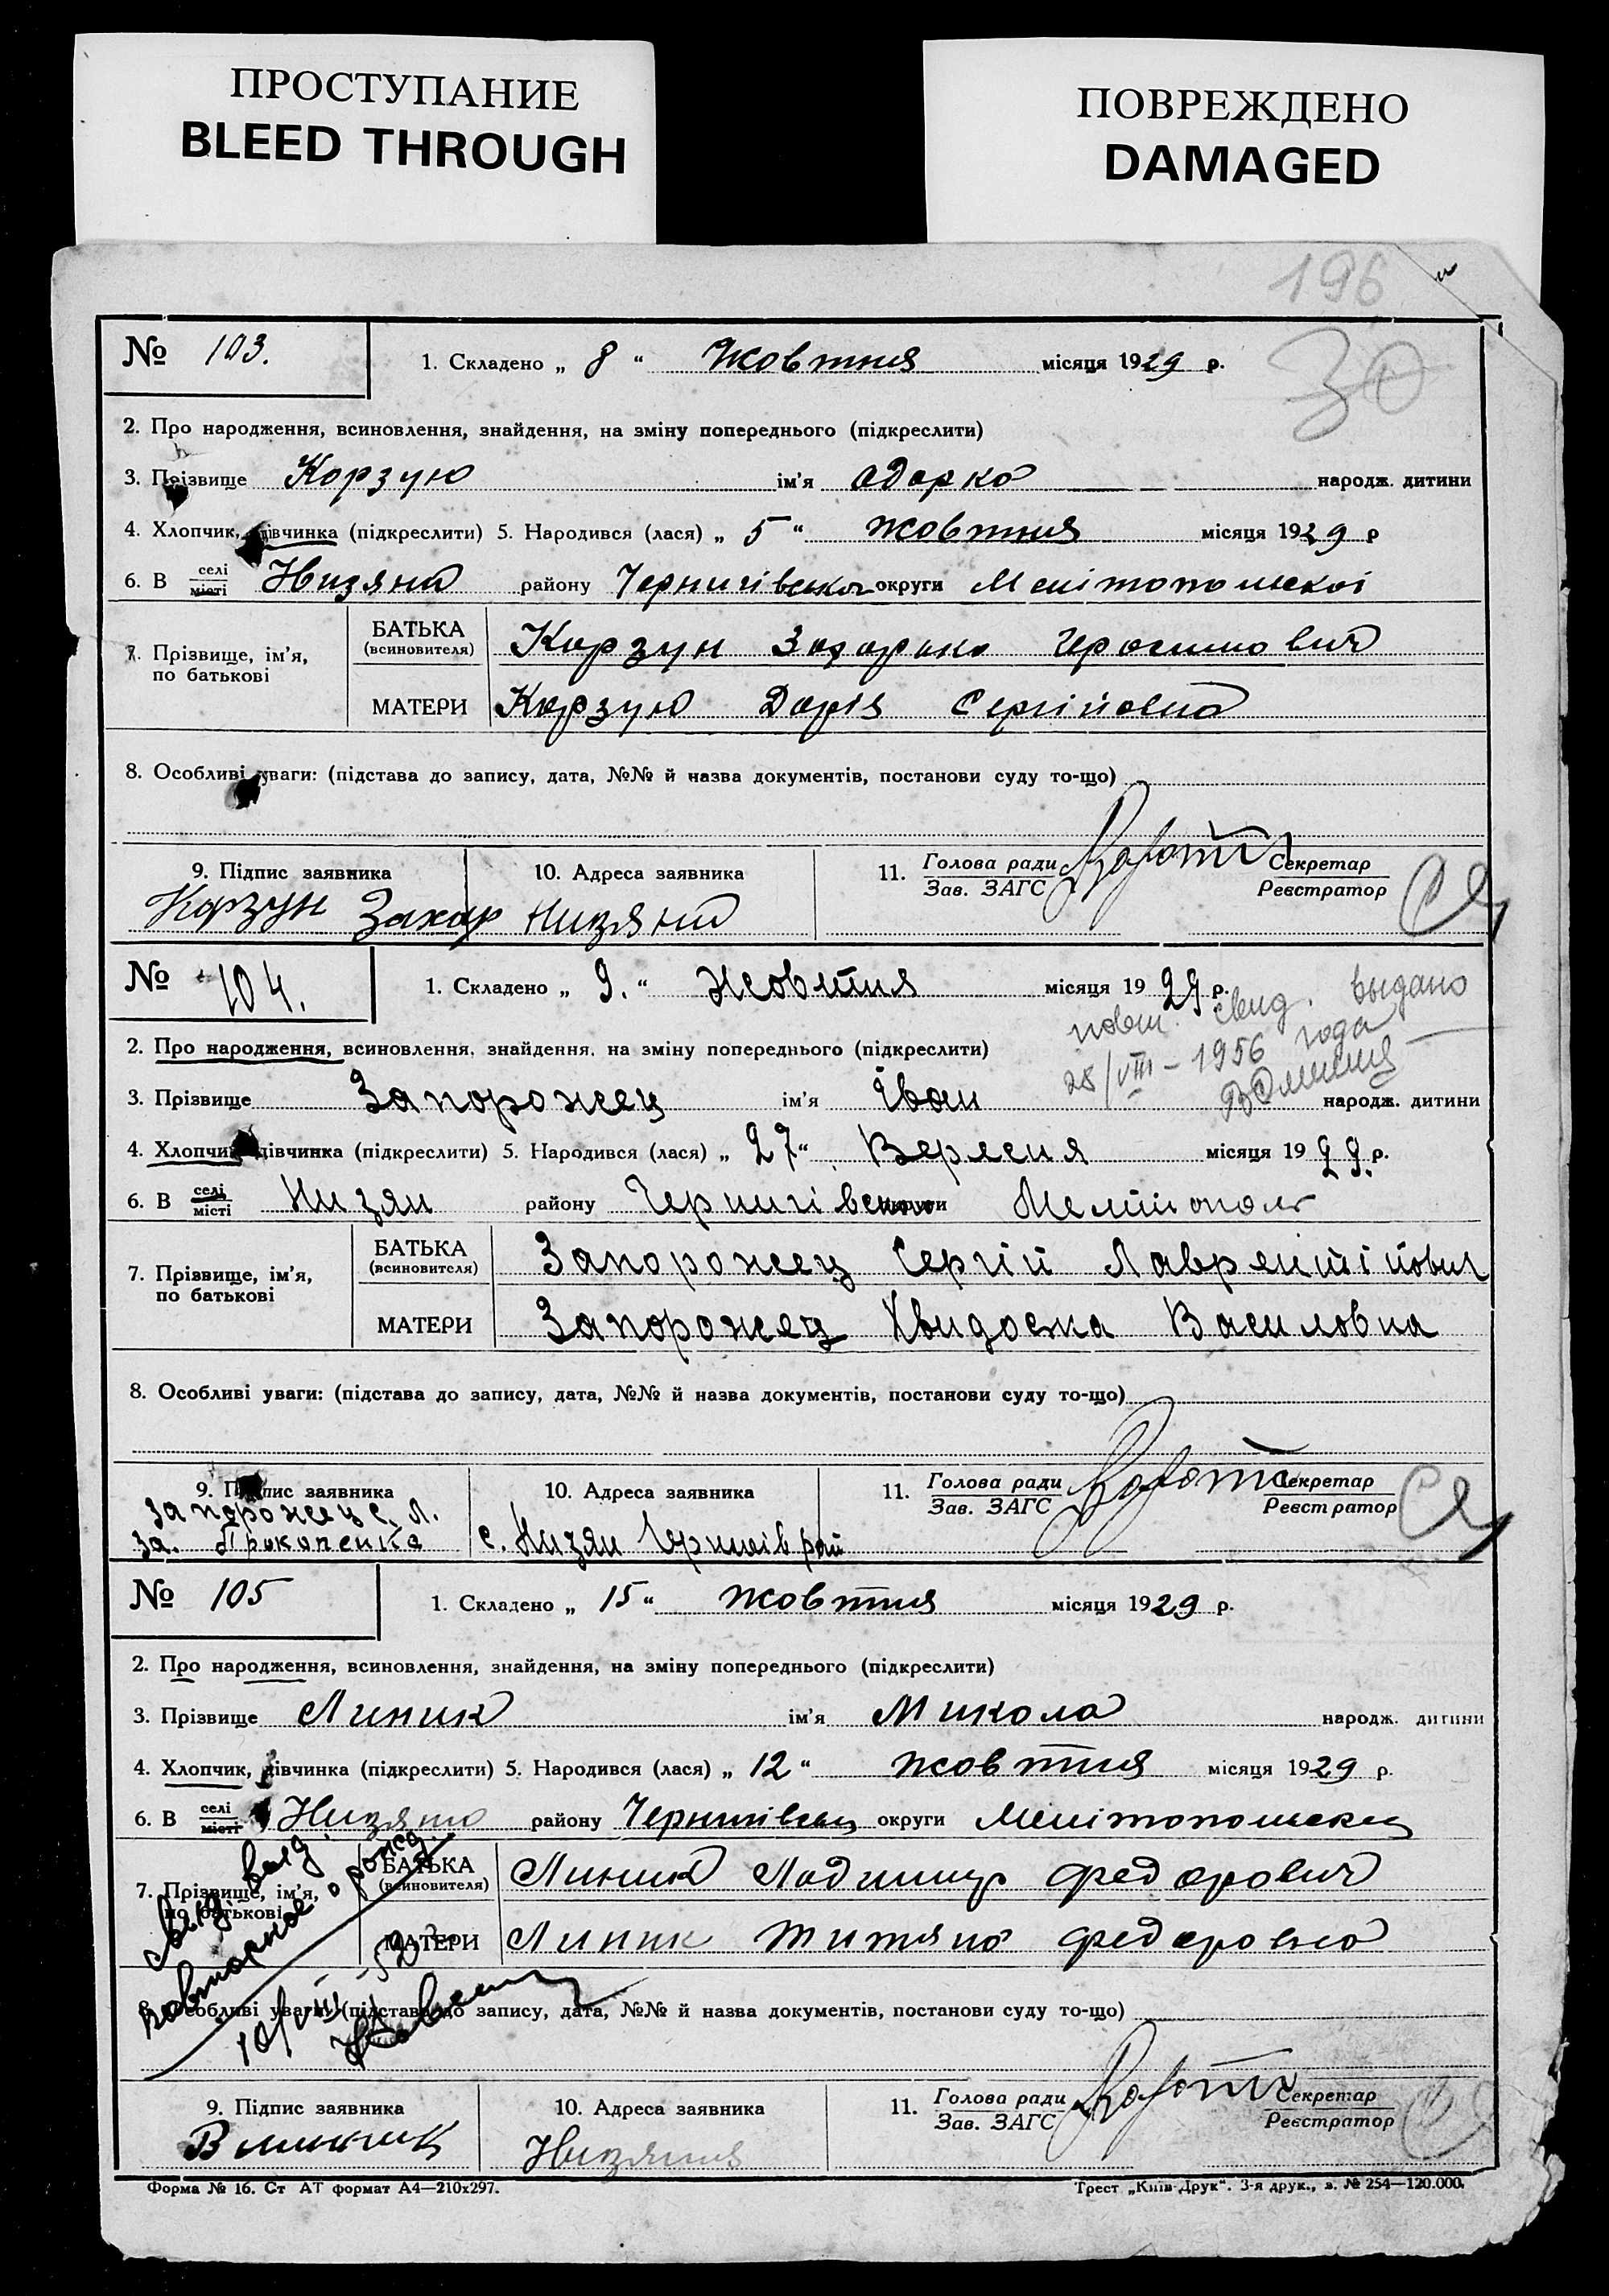 ПРОСТУПАНИЕ
BLEED THROUGH
ПОВРЕЖДЕНО
DAMAGED
196
30
№ 103. 1. Складено „ 8 “ Жовтня місяця 1929 р.
2. Про народження, всиновлення, знайдення, на зміну попереднього (підкреслити)
3. Прізвище Корзун ім'я Одарка народж. дитини
4. Хлопчик, дівчинка (підкреслити) 5. Народився (лася) „ 5 “ жовтня місяця 1929 р
6. В селі місті Низяни району Чернигівського округи Мелітопольскої
7. Прізвище, ім'я, по батькові БАТЬКА (всиновителя) Корзун Герасимович
МАТЕРИ Корзун Дарія Сергіївна
8. Особливі уваги: (підстава до запису, дата, №№ й назва документів, постанови суду то-що)
9. Підпис заявника 10. Адреса заявника 11. Голова ради Зав. ЗАГС Секретар Реєстратор
Корзун Захар Низяни
№ 104. 1. Складено „ 9. “ Жовтня місяця 1929 р.
повт. свид. выдано
28/VIII – 1956 года
2. Про народження, всиновлення, знайдення, на зміну попереднього (підкреслити)
3. Прізвище Запорожец ім'я Іван народж. дитини
4. Хлопчик, дівчинка (підкреслити) 5. Народився (лася) „ 27 “ Вересня місяця 1929 р.
6. В селі місті Низян району Чернигівського округи Мелітополь
7. Прізвище, ім'я, по батькові БАТЬКА (всиновителя) Запорожец Сергій Лаврентійович
МАТЕРИ Запорожец Хвидоска Василовна
8. Особливі уваги: (підстава до запису, дата, №№ й назва документів, постанови суду то-що)
9. Підпис заявника 10. Адреса заявника 11. Голова ради Зав. ЗАГС Секретар Реєстратор
Запорожец С. Л.
за. Прокопенка с. Низян Чернигів рай
№ 105 1. Складено „ 15 “ жовтня місяця 1929 р.
2. Про народження, всиновлення, знайдення, на зміну попереднього (підкреслити)
3. Прізвище Линик ім'я Микола народж. дитини
4. Хлопчик, дівчинка (підкреслити) 5. Народився (лася) „ 12 “ жовтня місяця 1929 р.
6. В селі місті Низяни району округи
7. Прізвище, ім'я, по батькові БАТЬКА (всиновителя) Линик Ладимир Федорович
МАТЕРИ Линик Титяна Федоровна
повторное о рожд.
8. Особливі уваги: (підстава до запису, дата, №№ й назва документів, постанови суду то-що)
9. Підпис заявника 10. Адреса заявника 11. Голова ради Зав. ЗАГС Секретар Реєстратор
Форма № 16. Ст АТ формат А4—210х297. Трест „Київ-Друк“. 3-я друк., з. № 254—120.000.